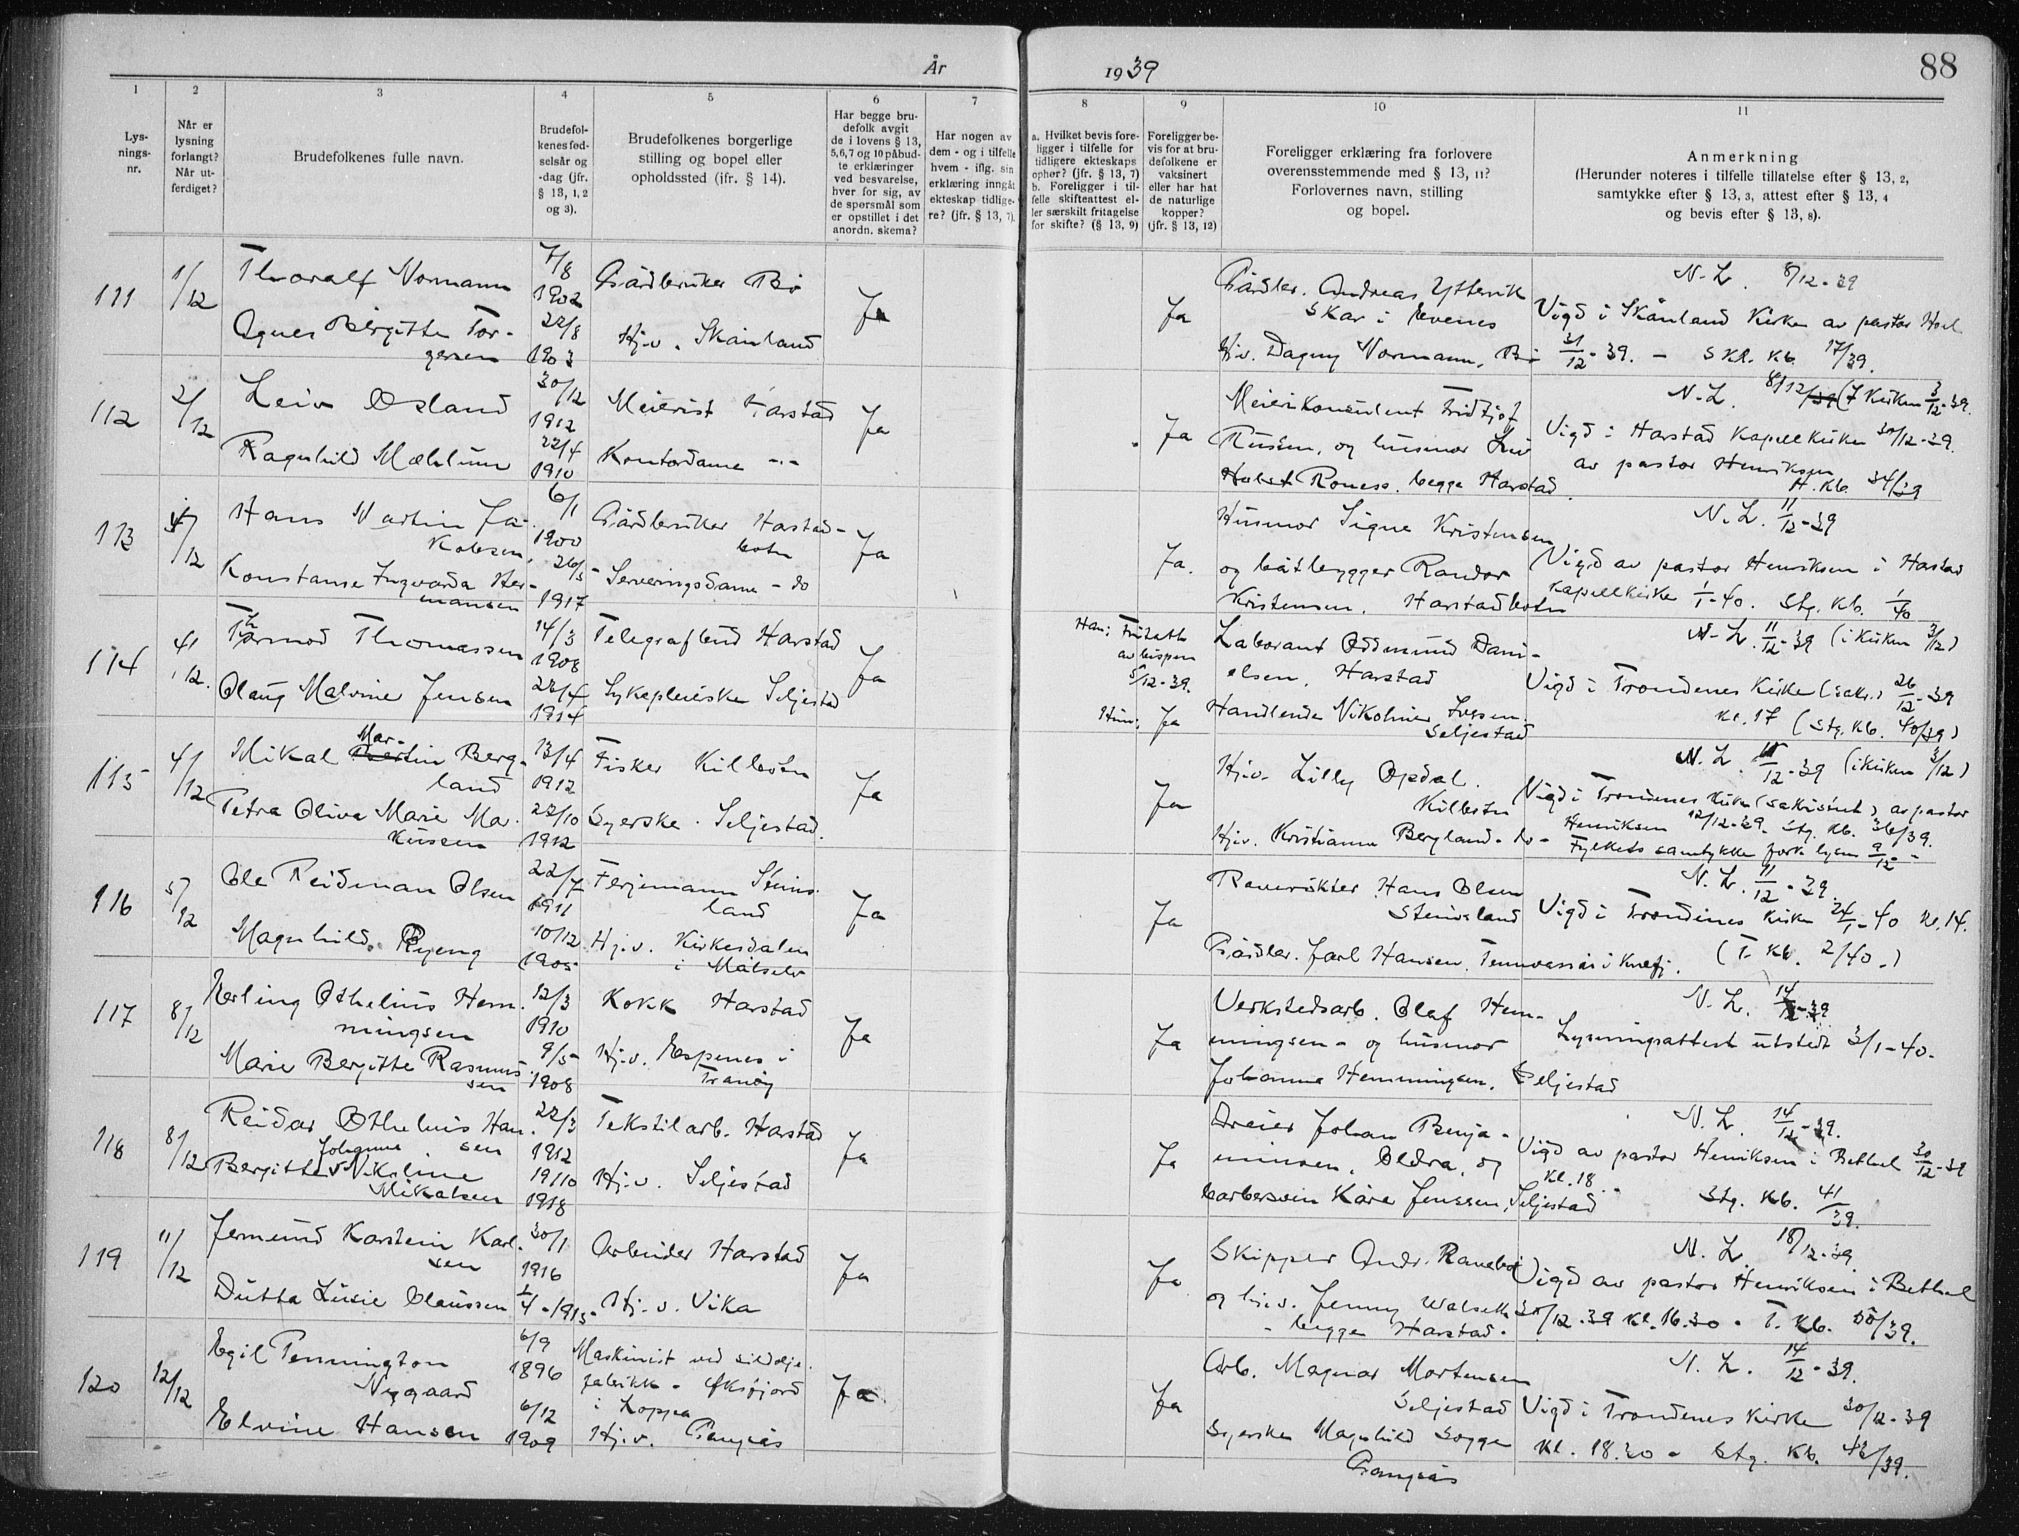 År 1939
88
1 2 3 4 5 6 7 8 9 10 11
Lys-
nings-
nr.
Når er
lysning
forlangt?
Når ut-
ferdiget?
Brudefolkenes fulle navn.
Brudefol-
kenes fød-
selsår og
-dag (jfr.
§ 13, 1, 2
og 3).
Brudefolkenes borgerlige
stilling og bopel eller
opholdssted (ifr. § 14).
Har begge bru-
defolk avgit
de i lovens § 13,
5,6,7 og 10 påbud-
te erklæringer
ved besvarelse,
hver for sig, av
de spørsmål som
er opstillet i det
anordn. skema?
Har nogen av
dem - og i tilfelle
hvem - iflg. sin
erklæring inngåt
ekteskap tidlige-
re? (jfr. § 13, 7).
a. Hvilket bevis fore-
ligger i tilfelle for
tidligere ekteskaps
ophør? (jfr. § 13, 7)
b. Foreligger i til-
felle skifteattest el-
ler særskilt fritagelse
for skifte? (§ 13, 9)
Foreligger be-
vis for at bru-
defolkene er
vaksinert
eller har hat
de naturlige
kopper?
(jfr. § 13, 12)
Foreligger erklæring fra forlovere
overensstemmende med § 13, 11?
Forlovernes navn, stilling
og bopel.
Anmerkning
(Herunder noteres i tilfelle tillatelse efter § 13, 2,
samtykke efter § 13, 3, attest efter § 13, 4
og bevis efter § 13, 8).
111 1/12 Thoralf Normann 7/8 1902 Gårdbruker Bø Ja
Agnes Bergitte Tor-
gersen 22/8 1903 Hj.v. Skånland
Ja Gårdbr. Andreas Yttervik
Skar i Evenes
Hj.v. Dagny Normann, Bø
N.L. 8/12-39
Vigd i Skånland Kirke av pastor
31/12-39. - Skl. Kb. 17/39.
112 2/12 Leiv Osland 30/12 1912 Meierist Harstad Ja
Ragnhild Mæhlum 22/4 1910 Kontordame -"-
Ja Meierikonsulent Fridtjof
Russen, og husmor Liv
Holst Roness. begge Harstad.
N.L. 8/12/39 (I Kirken 3/12-39.
Vigd i Harstad Kapellkirke 30/12-39.
av pastor Henriksen
H. Kb. 34/39
113 4/12 Hans Martin Ja-
kobsen, 6/1 1900 Gårdbruker Harstad-
botn Ja
Konstanse Ingvarda Her-
mansen 26/5 1917 Serveringsdame - do
Ja. Husmor Signe Kristensen
og båtbygger Randor
Kristensen. Harstadbotn
N.L. 11/12-39
Vigd av pastor Henriksen i Harstad
Kapellkirke 1/1-40. Stg. Kb. 1/40
114 4/12. Thormod Thomassen 14/3 1908 Telegrafbud Harstad Ja
Olaug Malvine Jensen 22/4 1914 Sykepleiske Seljestad
Han: Friatt.
av bispen
5/12-39.
Hun: Ja
Laborant Oddmund Dani-
elsen, Harstad
Handlende Nikoline Ivesen.
Seljestad
N.L. 11/12-39 (i Kirken 3/12)
Vigd i Trondenes Kirke (sakr.) 26/12-39
Kl. 17 (Stg. Kb. 40/39)
115 4/12 Mikal Martin Berg-
land 13/4 1912 Fisker Kilbotn Ja
Petra Oliva Marie Mar-
kussen 22/10 1912 Syerske. Seljestad.
Ja Hj.v. Lilly Opdal.
Kilbotn
Hj.v. Kristianna Bergland - do -
N.L. 11/12-39 (i Kirken 3/12)
Vigd i Trondenes Kirke (sakristiet) av pastor
Henriksen 12/12-39. Stg. Kb. 36/39.
Fylkets samtykke fork. lysn. 9/12 -
116 5/12 Ole Reidman Olsen 22/7 1911 Ferjemann Steins-
land Ja
Magnhild Ryeng 10/12 1905 Hj.v. Kirkesdalen
i Målselv
Ja Revevokter Hans Olsen
Steinsland
Gårdbr. Jarl Hansen. Tennvassås i Kvefj.
N.L. 11/12-39.
Vigd i Trondenes Kirke 24/1-40 Kl. 14.
(T. Kb. 2/40.)
117 8/12 Erling Othelius Hem-
mingsen 12/3 1910 Kokk Harstad Ja
Marie Bergitte Rasmus-
sen 9/5 1908 Hj.v. Espenes i
Tranøy
Ja Verkstedsarb. Olaf Hem-
mingsen - og husmor
Johanna Hemmingsen, Seljestad
N.L. 14/12-39
Lysningsattest utstedt 3/1-40.
118 8/12 Reidar Othelius Han-
sen 22/3 1912 Tekstilarb. Harstad Ja
Bergitte Johanne Nikoline
Mikalsen 19/10 1918 Hj.v. Seljestad
Ja Dreier Johan Benja-
minsen, Oldra, og
barbersvein Kåre Jenssen, Seljestad
N.L. 14/12-39.
Vigd av pastor Henriksen i Bethel 30/12-39
Kl. 18. Stg. Kb. 41/39.
119 11/12 Jermund Karstein Karl-
sen 30/1 1916 Arbeider Harstad Ja
Dutta Lusie Claussen 1/4-1915 Hj.v. Vika
Ja Skipper Andr. Ranebo
og hj.v. Jenny Walseth
- begge Harstad.
N.L. 18/12-39.
Vigd av pastor Henriksen i Bethel
30/12-39 Kl. 16.30 - T. Kb. 55/39.
120 12/12 Egil Pennington
Nygaard 6/9 1896 Maskinist ved sildolje-
fabrikk - Øksfjord
i Loppa Ja
Elvine Hansen 6/12 1909 Hj.v. Gangsås
Ja Arb. Magnar Mortensen
Seljestad
Syerske Magnhild Bogge
Gangsås
N.L. 14/12-39.
Vigd i Trondenes Kirke 30/12-39
Kl. 18.30 - Stg. Kb. 42/39.